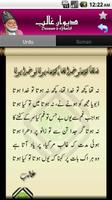 12:22 AM
دیوان غالب
Deewan-e-Ghalib
Urdu
Roman
نہ تھا کچھ تو خدا تھا کچھ نہ ہوتا تو خدا ہوتا
نہ تھا کچھ تو خدا تھا، کچھ نہ ہوتا تو خدا ہوتا
ڈبویا مجھ کو ہونے نے، نہ ہوتا میں تو کیا ہوتا
ہوا جب غم سے یوں بے حس تو غم کیا سر کے کٹنے کا
نہ ہوتا گر جدا تن سے تو زانو پر دھرا ہوتا
ہوئی مدت کہ غالب مر گیا پر یاد آتا ہے
وہ ہر اک بات پر کہنا کہ یوں ہوتا تو کیا ہوتا
غالب